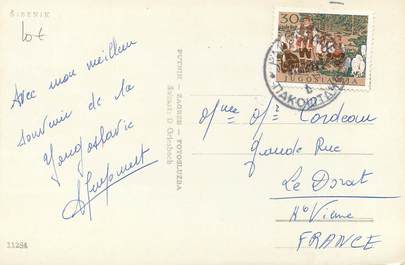 ŠIBENIK
10€
Avec mon meilleur
souvenir de la
Yougoslavie
PUTNIK — ZAGREB — FOTOSLUŽBA
30
JUGOSLAVIJA
Mme Mr Cordeau
Grande Rue
Le Dorat
Hte Vienne
FRANCE
11284